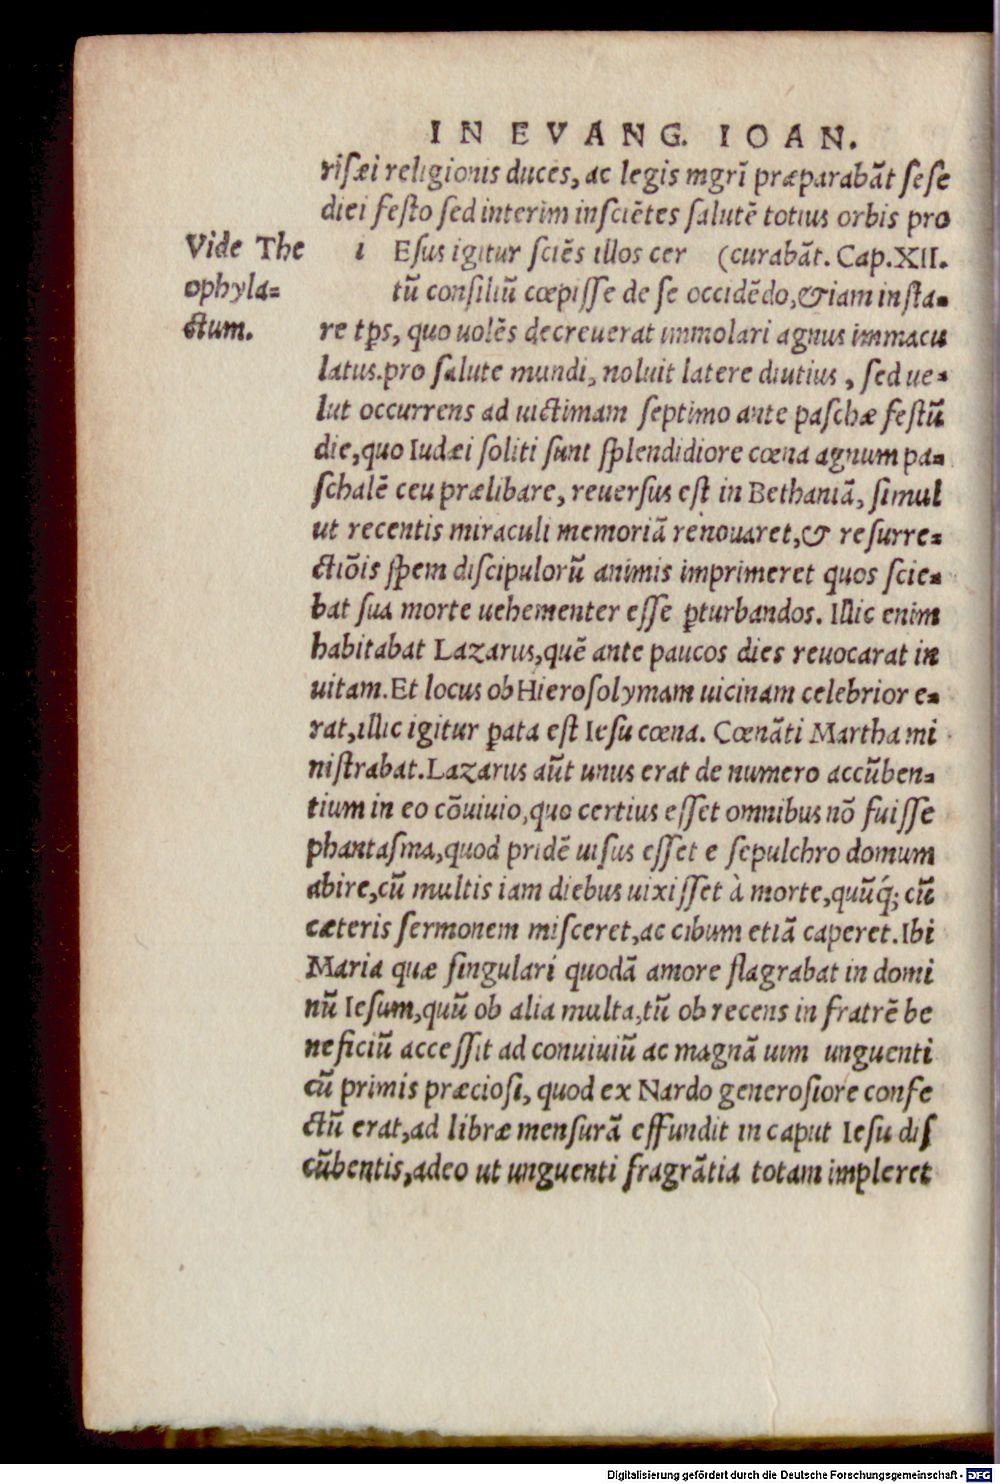 IN EVANG. IOAN.
riſæi religionis duces, ac legis mgrī præparabāt ſeſe
diei feſto ſed interim inſciētes ſalutē totius orbis pro
Vide The
ophyla-
ctum.
i Eſus igitur ſciēs illos cer (curabāt. Cap.XII.
tū conſiliū cœpiſſe de ſe occidēdo,& iam inſta-
re tp̄s, quo uolēs decreuerat immolari agnus immacu
latus.pro ſalute mundi, noluit latere diutius, ſed ue-
lut occurrens ad uictimam ſeptimo ante paſchæ feſtū
die,quo Iudæi ſoliti ſunt ſplendidiore cœna agnum pa-
ſchalē ceu prælibare, reuerſus eſt in Bethaniā, ſimul
ut recentis miraculi memoriā renouaret,& reſurre-
ctiōis ſpem diſcipulorū animis imprimeret quos ſcie-
bat ſua morte uehementer eſſe ꝑturbandos. Illic enim
habitabat Lazarus,quē ante paucos dies reuocarat in
uitam.Et locus ob Hieroſolymam uicinam celebrior e-
rat,illic igitur ꝑata eſt Ieſu cœna. Cœnāti Martha mi
niſtrabat.Lazarus aūt unus erat de numero accūben-
tium in eo cōuiuio,quo certius eſſet omnibus nō fuiſſe
phantaſma,quod pridē uiſus eſſet e ſepulchro domum
abire,cū multis iam diebus uixiſſet à morte,quūq́; cū
cæteris ſermonem miſceret,ac cibum etiā caperet.Ibi
Maria quæ ſingulari quodā amore flagrabat in domi
nū Ieſum,quū ob alia multa,tū ob recens in fratrē be
neficiū acceſſit ad conuiuiū ac magnā uim unguenti
cū primis præcioſi, quod ex Nardo generoſiore confe
ctū erat,ad libræ menſurā effundit in caput Ieſu diſ
cūbentis,adeo ut unguenti fragrātia totam impleret
Digitalisierung gefördert durch die Deutsche Forschungsgemeinschaft - DFG